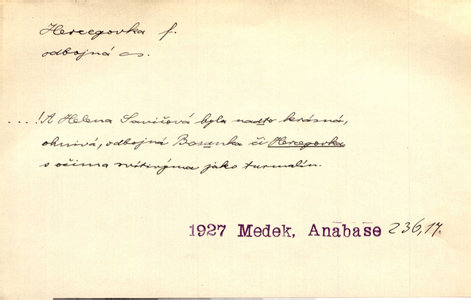 Hercegovka f.
odbojná cs.
...! A Helena Savičová byla nadto krásná,
ohnivá, odbojná Bosanka či Hercegovka
s očima svítivýma jako turmalin.
1927 Medek, Anabase 236,17.